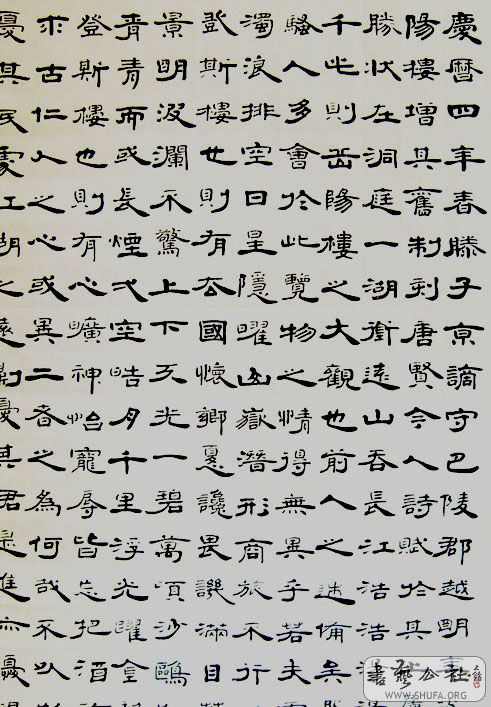 慶曆四年春滕子京謫守巴陵郡越明
陽樓增其舊制刻唐賢今人詩賦於其
勝狀在洞庭一湖銜遠山吞長江浩浩
千此則岳陽樓之大觀也前人之述備矣
騷人多會於此覽物之情得無異乎若夫
濁浪排空日星隱曜山嶽潛形商旅不行
登斯樓也則有去國懷鄉憂讒畏譏滿目
景明波瀾不驚上下天光一碧萬頃沙鷗
青青而或長煙弌空皓月千里浮光躍金
登斯樓也則有心曠神怡寵辱皆忘把酒
求古仁人之心或異二者之為何哉不以
憂其民處江湖之遠則憂其君是進亦憂
書藝公社
WWW.SHUFA.ORG